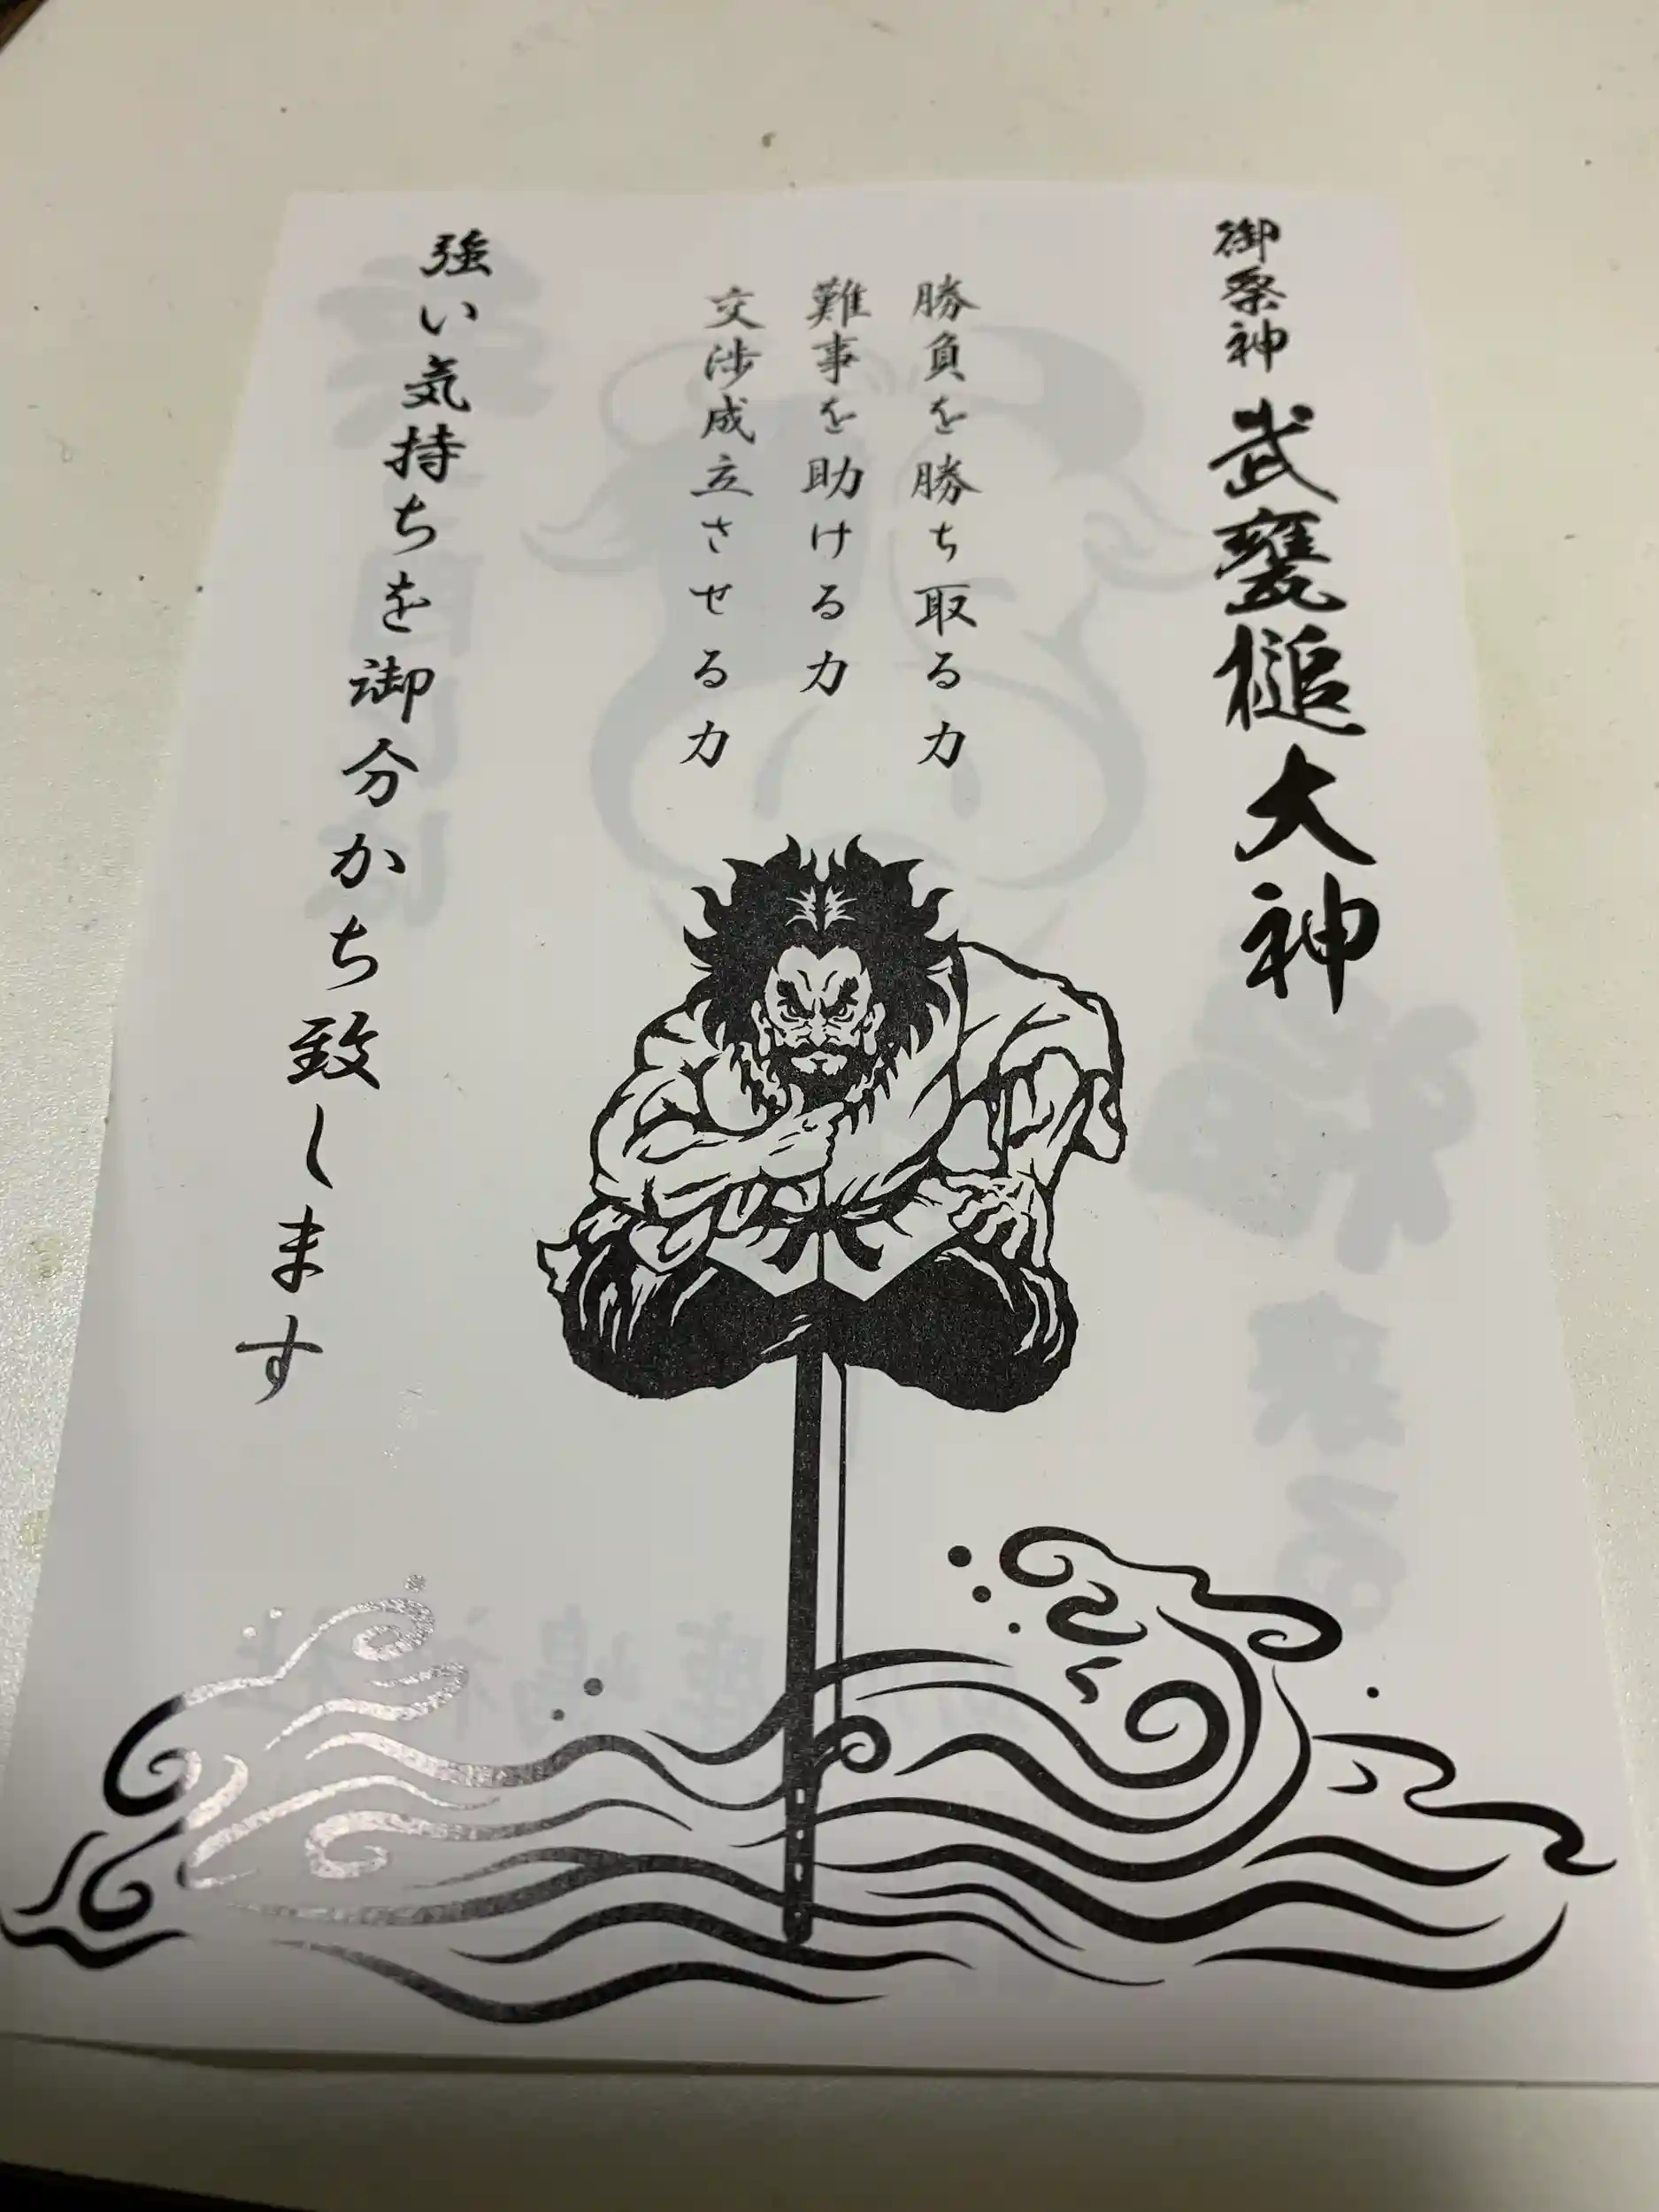 御祭神 武甕槌大神
勝負を勝ち取る力
難事を助ける力
交渉成立させる力
強い気持ちを御分かち致します